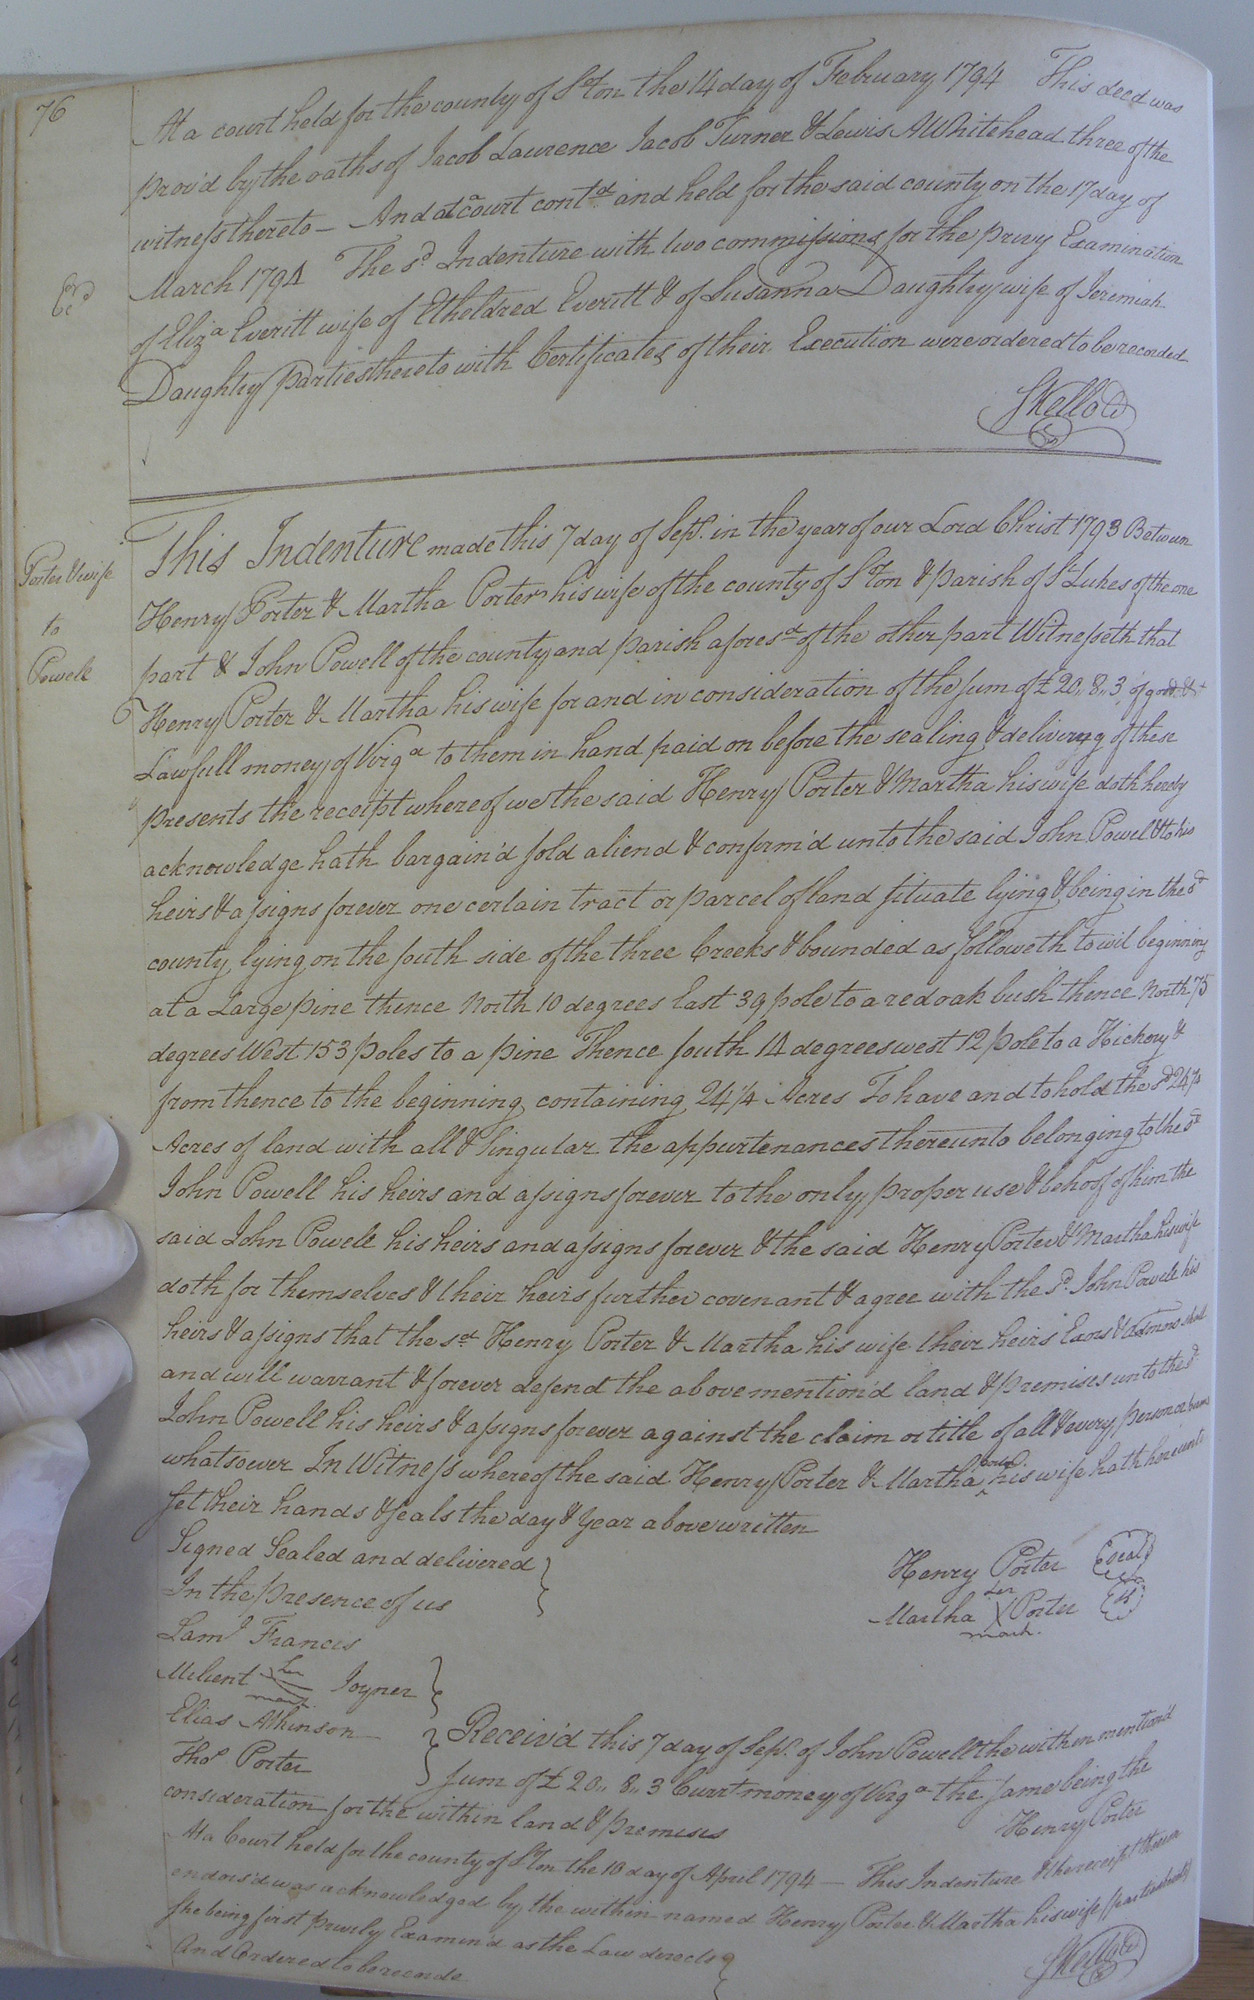 76
At a court held for the county of S°ton the 14 day of February 1794 This deed was
prov'd by the oaths of Jacob Laurence Jacob Turner & Lewis A Whitehead three of the
witness thereto – And at a court contd. and held for the said county on the 17 day of
March 1794 The sd. Indenture with two commissions for the privy Examination
of Eliza Everitt wife of Etheldred Everitt & of Susanna Daughtry wife of Jeremiah
Daughtry parties thereto with Certificates of their Execution were ordered to be recorded
Exd
SKello CS
Porter & wife
to
Powell
This Indenture made this 7 day of Sept. in the year of our Lord Christ 1793 Between
Henry Porter & Martha Porter his wife of the county of S°ton & parish of St Lukes of the one
part & John Powell of the county and parish aforesd of the other part Witnesseth that
Henry Porter & Martha his wife for and in consideration of the sum of £20,,8,,3 of good &
Lawfull money of Virga to them in hand paid on before the sealing & delivering of these
presents the receipt whereof we the said Henry Porter & Martha his wife doth hereby
acknowledge hath bargain'd sold aliend & confirm'd unto the said John Powel & to his
heirs & assigns forever one certain tract or parcel of land situate lying & being in the sd
county lying on the south side of the three Creeks & bounded as followeth to wit beginning
at a Large pine thence North 10 degrees East 39 pole to a red oak bush thence North 75
degrees West 153 poles to a pine Thence South 14 degrees west 12 pole to a Hickory &
from thence to the beginning containing 24¼ Acres To have and to hold the sd 24¼
Acres of land with all & singular the appurtenances thereunto belonging to the sd
John Powell his heirs and assigns forever to the only proper use & behoof of him the
said John Powell his heirs and assigns forever & the said Henry Porter & Martha his wife
doth for themselves & their heirs further covenant & agree with the sd. John Powell his
heirs & assigns that the sd Henry Porter & Martha his wife their heirs Exors & admrs shall
and will warrant & forever defend the above mention'd land & premises unto the sd
John Powell his heirs & assigns forever against the claim or title of all & every person
whatsoever In Witness whereof the said Henry Porter & Martha his wife hath hereunto
set their hands & seals the day & year above written
Signed Sealed and delivered
In the presence of us
Henry Porter seal
Martha her X mark. Porter
Saml Frances
Milient her mark Joyner
Elias Atkinson
Thos Porter
Receiv'd this 7 day of Sept. of John Powell the within mention'd
sum of £20,,8,,3 Currt money of Virga the same being the
consideration for the within land & premises
Henry Porter
At a Court held for the county of S°ton the 10 day of April 1794 — This Indenture & the receipt thereon
endors'd was acknowledged by the within named Henry Porter & Martha his wife parties hereto
she being first privily Examin'd as the Law directs
And Ordered to be recorde
SKello CS